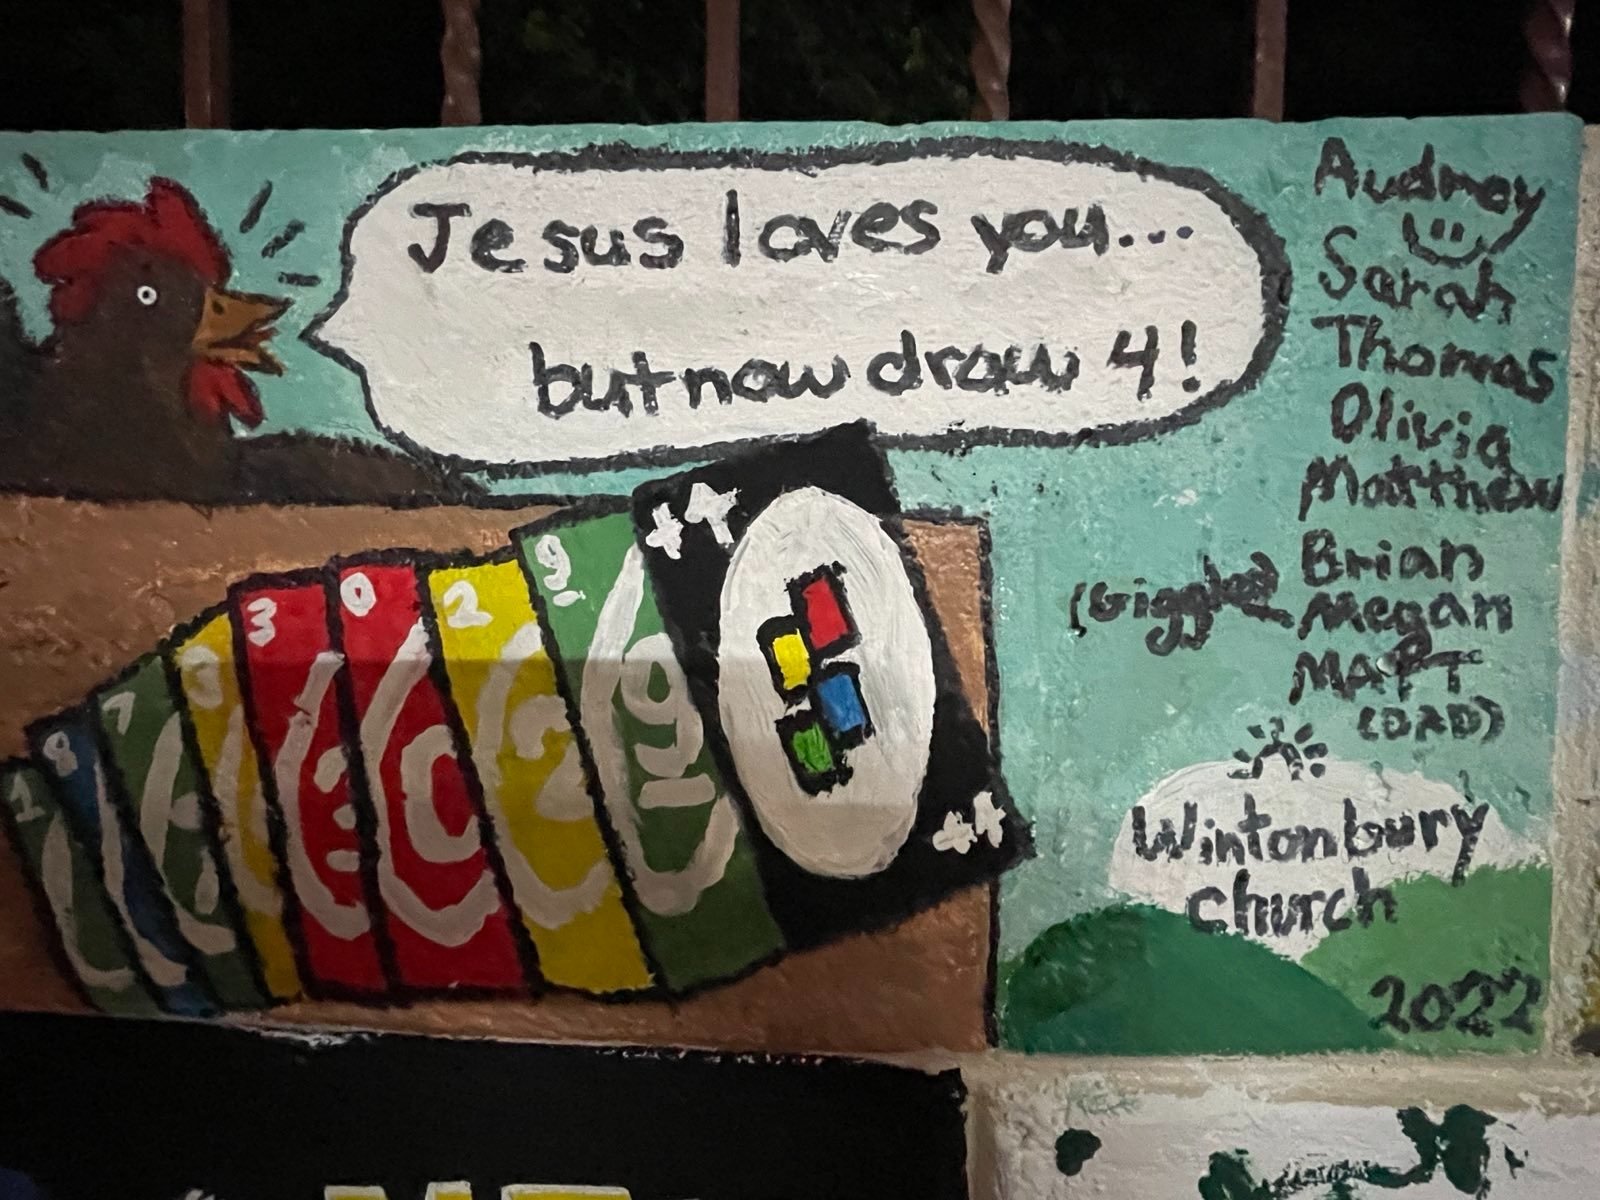 Jesus loves you...
but now draw 4!
Audrey
Sarah
Thomas
Olivia
Matthew
Brian
(Giggles) Megan
MATT
(DAD)
Wintonbury
church
2022
1
8
7
3
3
3
0
0
2
2
9
9
+4
+4